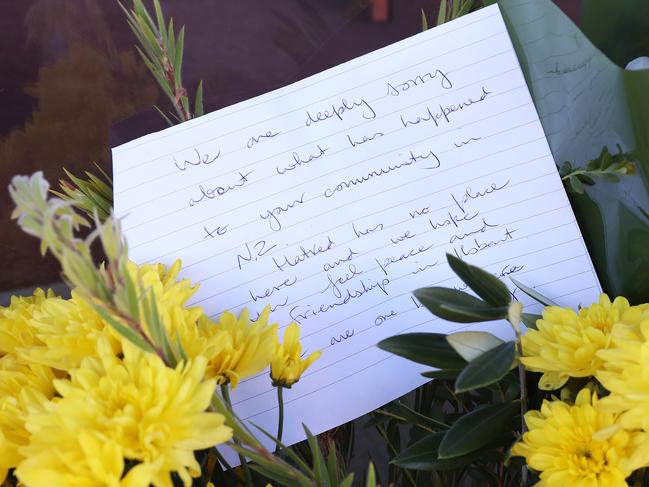 We are deeply sorry
about what has happened
to your community in
NZ. Hatred has no place
here and we hope
you feel peace and
Friendship in Hobart.
are one